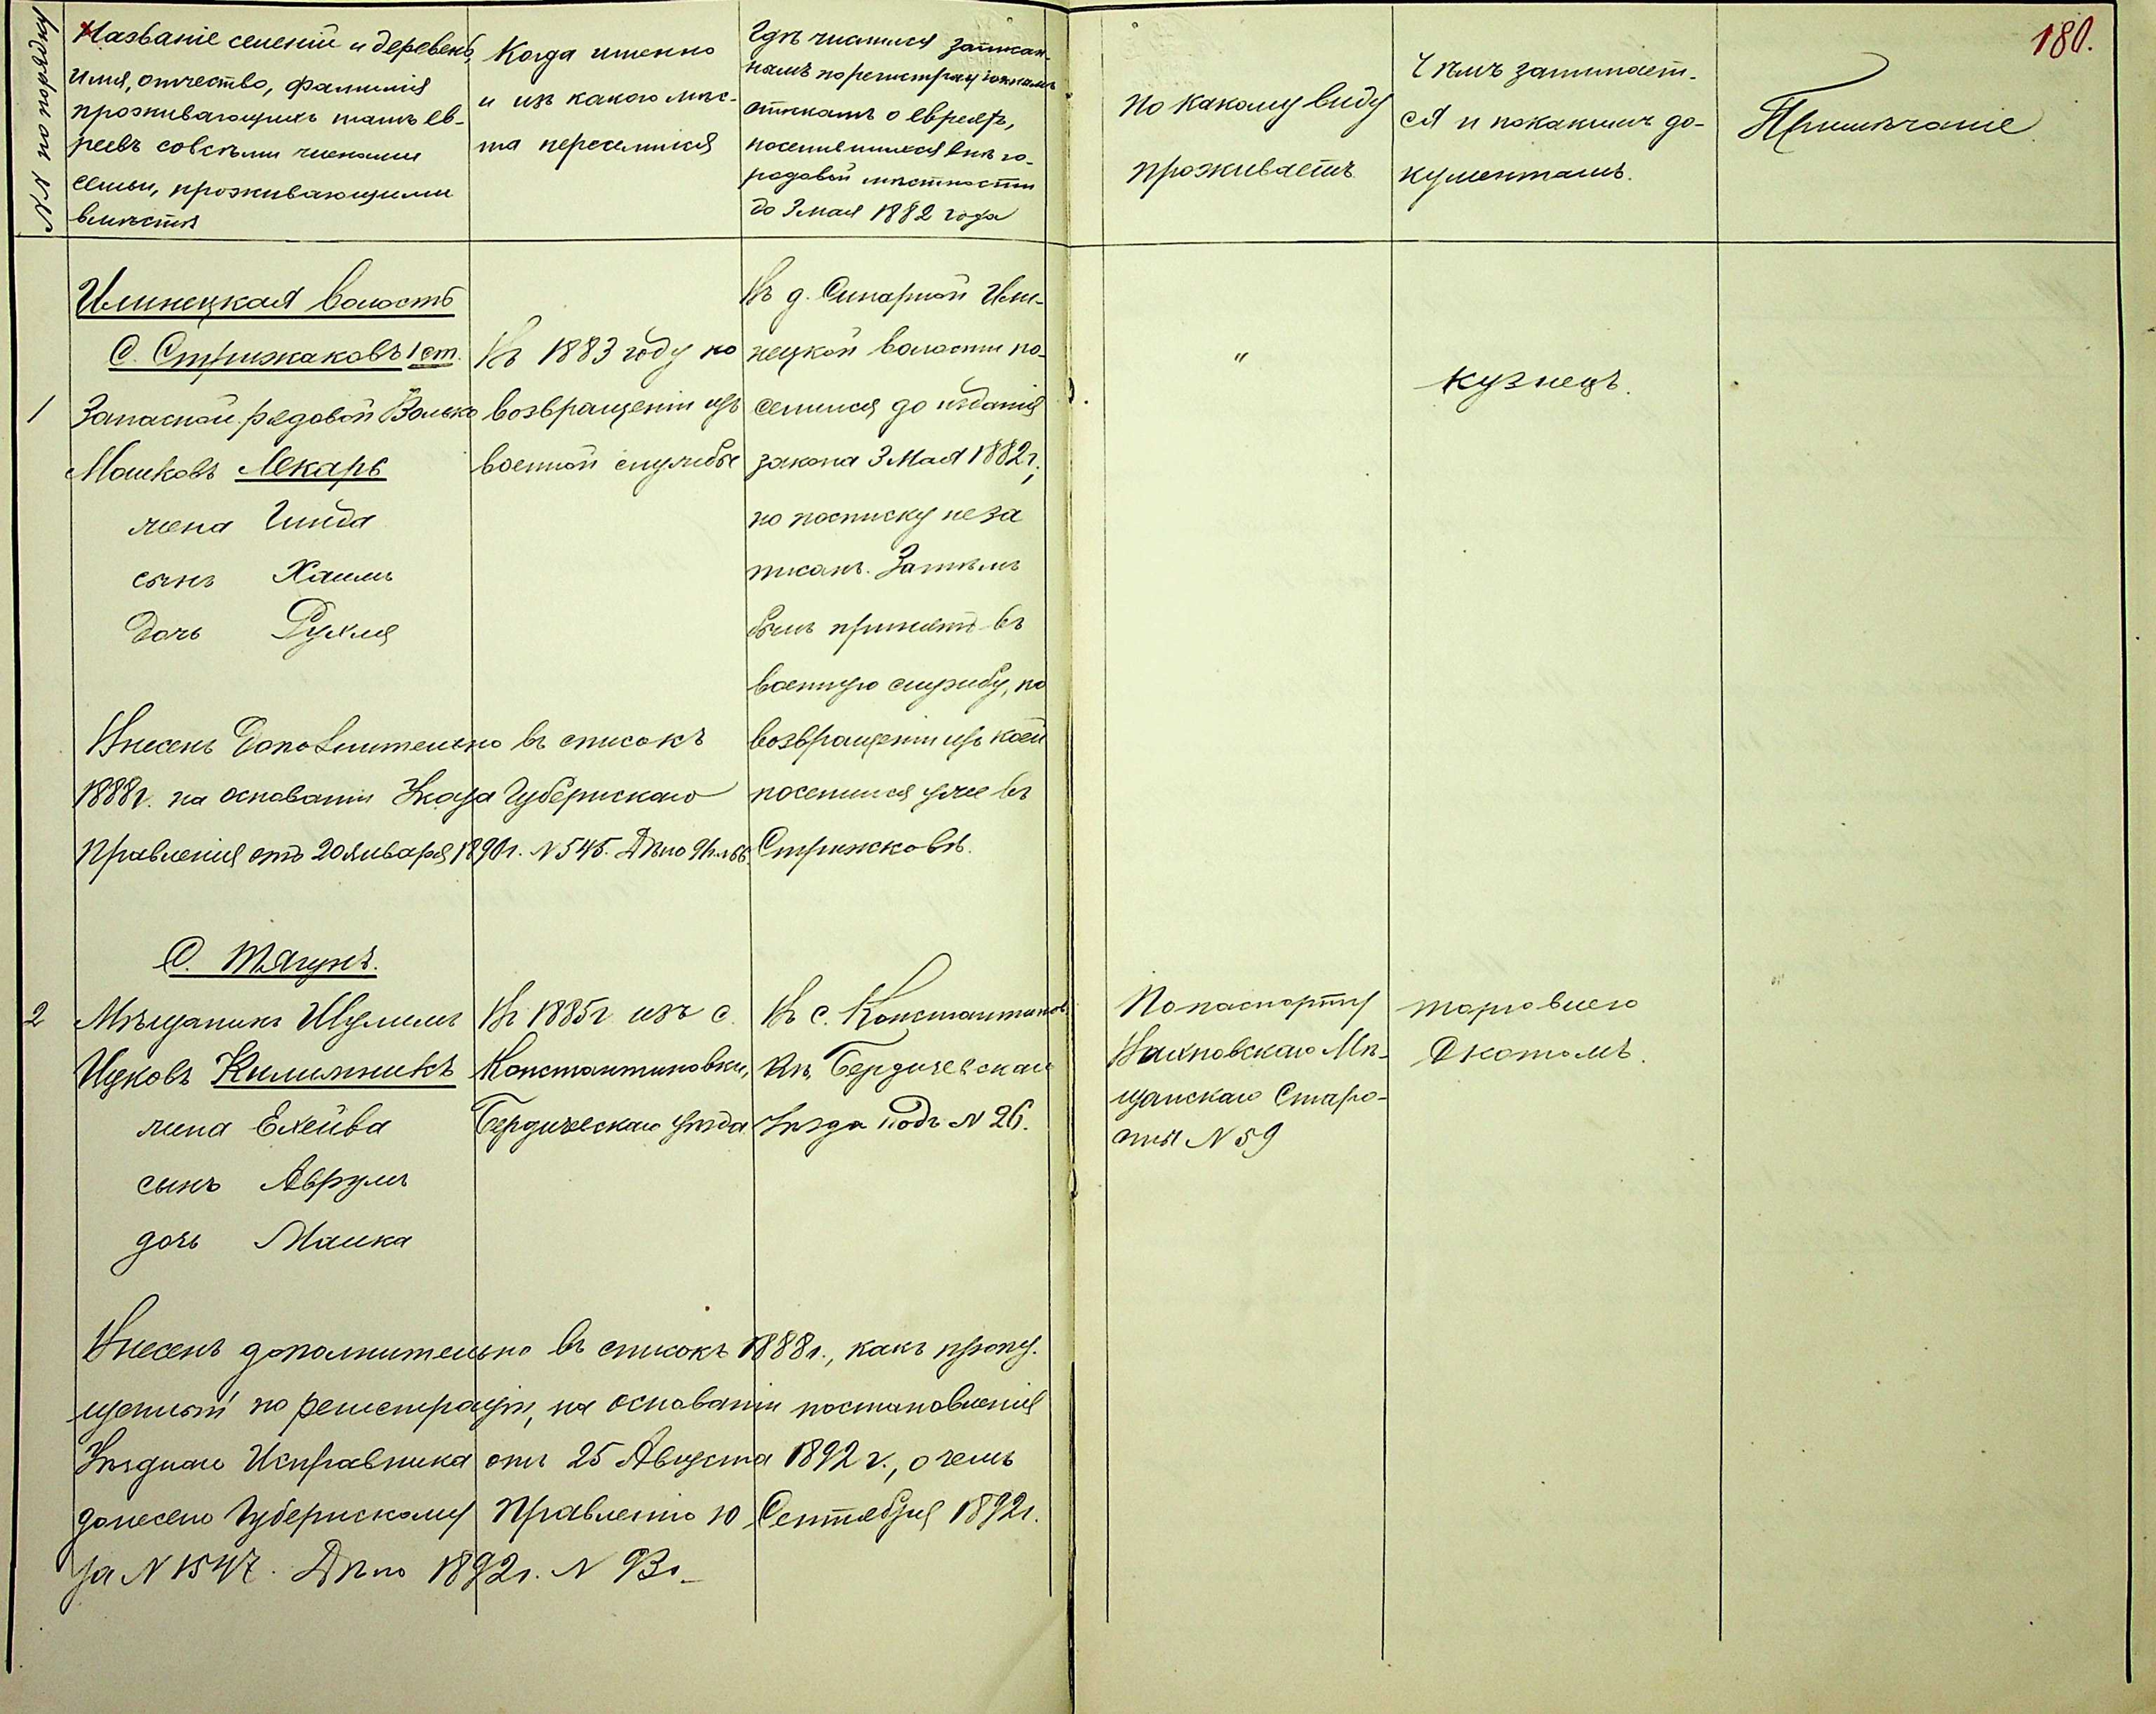 180.
№№ по порядку
Названіе селеній и деревень,
имя, отчество, фамилія
проживающихъ тамъ ев-
реевъ совсѣми членами
семьи, проживающими
вмѣстѣ
Когда именно
и изъ какого мѣс-
та переселился
Гдѣ числился записан-
нымъ по регистраціоннымъ
спискамъ о евреяхъ,
поселившихся внѣ го-
родовой мѣстности
до 3 мая 1882 года
По какому виду
проживаетъ
Чѣмъ занимает-
ся и покакимъ до-
кументамъ.
Примѣчаніе
Илинецкая волость
С. Стрижаковъ 1 ст.
1
Запасной рядовой Волько
Мошковъ Лекарь
жена Гинда
сынъ Хаимъ
дочь Рухля
Въ 1883 году по
возвращеніи изъ
военной службы
Въ д. Сипарной Или-
нецкой волости по-
селился до изданія
закона 3 Мая 1882 г.,
но посписку не за
писанъ. Затѣмъ
былъ принятъ въ
военную службу, по
возвращеніи изъ коей
поселился уже въ
Стрижковѣ.
"
кузнецъ.
Внесенъ дополнительно въ списокъ
1888 г. на основаніи Указа Губернскаго
Правленія отъ 20 Января 1890 г. № 545. Дѣло
С. Тягунъ.
2
Мѣщанинъ Шулимъ
Ицковъ Килимникъ
жена Ехейва
сынъ Аврумъ
дочь Машка
Въ 1885 г изъ с.
Константиновки,
Бердичевскаго уѣзда
Въ с. Константинов-
кѣ, Бердичевскаго
Уѣзда подъ № 26.
По паспорту
Вахновскаго Мѣ-
щанскаго Старо-
сты № 59
торговлею
Скотомъ.
Внесенъ дополнительно въ списокъ 1888 г., какъ пропу-
щенный по регистраціи, на основаніи постановленія
Уѣзднаго Исправника отъ 25 Августа 1892 г., о чемъ
донесено Губернскому Правленію 10 Сентября 1892 г.
за № 1547. Дѣло 1892 г. № 93